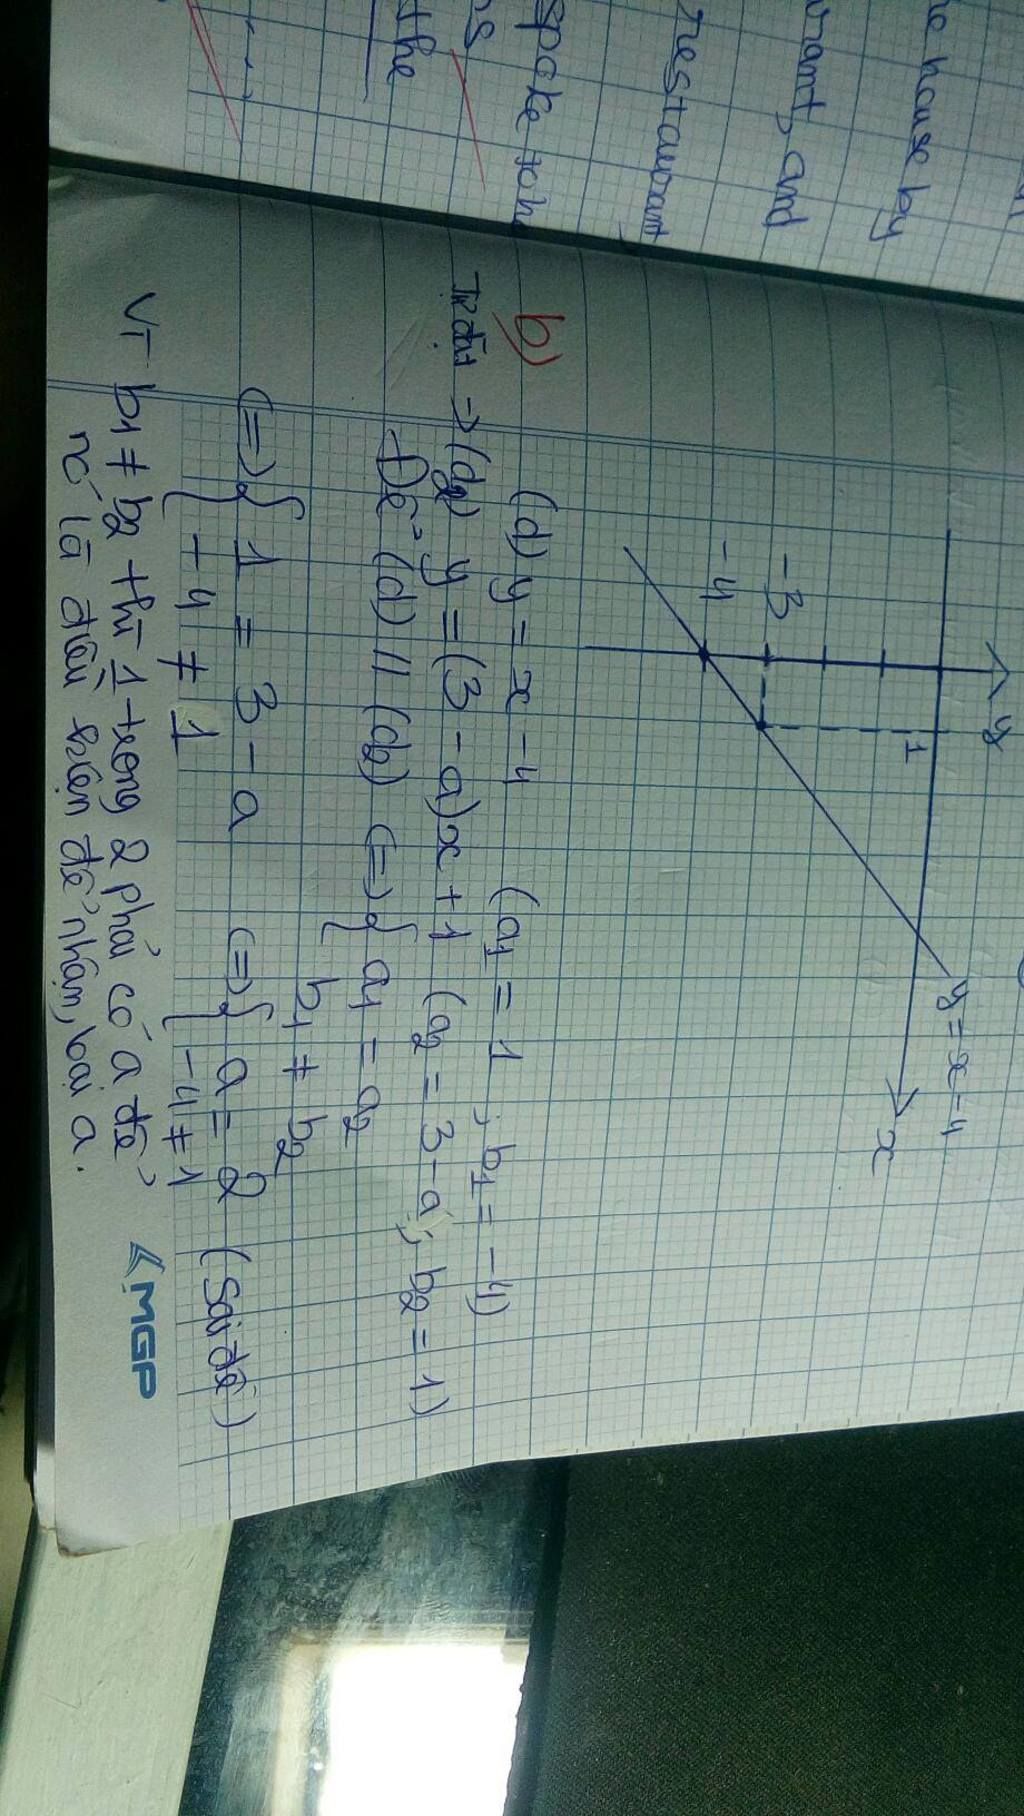 the house by
and
restaurant
spoke to
the
y
x
1
-3
-4
y = x - 4
b)
(d) y = x - 4 (a1 = 1 ; b1 = -4)
→ (d2) y = (3 - a)x + 1 (a2 = 3 - a ; b2 = 1)
- Để (d) // (d2) <=> { a1 = a2
b1 ≠ b2
<=> { 1 = 3 - a <=> { a = 2 (Sai đề)
-4 ≠ 1 -4 ≠ 1
Vì b1 ≠ b2 thì 1 trong 2 phải có a để
nó là điều kiện để nhận, loại a.
MGP